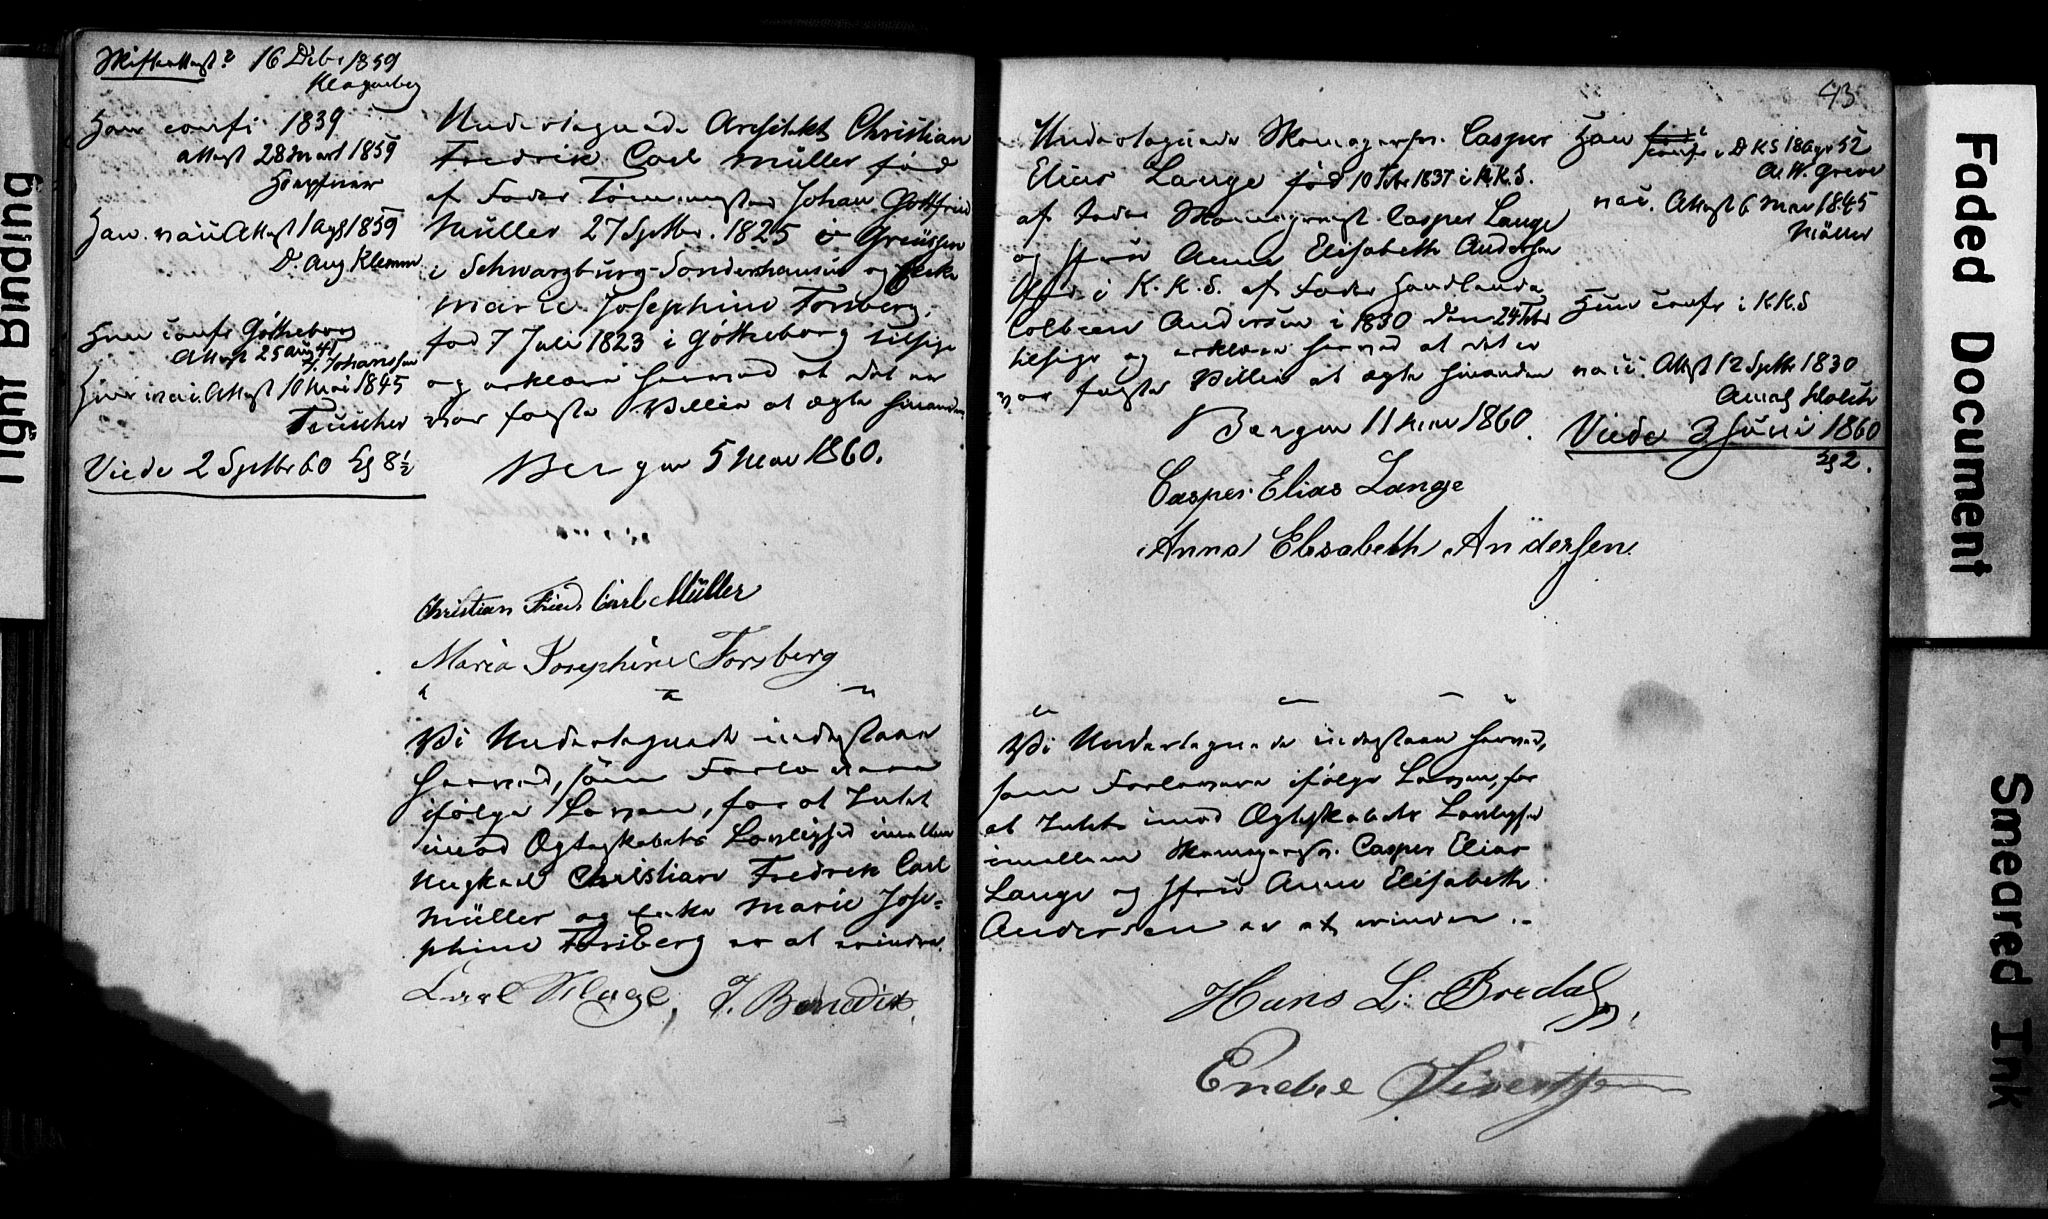 Skifteattest? 16 Decbr 1859
Klagenberg
Han confi 1839
attest 28 Mart 1859
Han. vacc Attest 1 Aug 1859
D. Aug Klemm
Hun confr Gøtheborg
Attest 25 Aug 47
Johanssen
Hun vacc. Attest 10 Mai 1845
Teuscher
Viede 2 Septbr 60 Kl 8½
Undertegnede Architekt Christian
Fredrik Carl Müller fød
af Fader Tømmermester Johan Gottfried
Müller 27 Septbr. 1825 i Greüssen
i Schwarzburg-Sonderhausen og Enke
Marie Josephine Forsberg,
fød 7 Juli 1823 i Gøtheborg tilsige
og erklære herved at det er
vor faste Villie at ægte hinanden
Bergen 5 Mai 1860.
Christian Fried Carl Müller
Maria Josephine Forsberg
Vi Undertegnede indestaae
herved, som Forlovere
ifølge Loven, for at Intet
imod Ægteskabets Lovlighed imellem
Ungkarl Christian Fredrik Carl
Müller og Enke Marie Jose=
phine Forsberg er at erindre.
Carl Klage, J. Benedix
43
Undertegnede Skomagersv. Casper
Elias Lange fød 10 Febr 1837 i K.K.S.
af Fader Skomagermest. Casper Lange
og Jfru Anne Elisabeth Andersen
fød i K.K.S. af Fader Handlende
Andersen i 1830 den 24 Febr
tilsige og erklære herved at det er
vor faste Villie at ægte hinanden
Bergen 11 Mai 1860.
Casper Elias Lange
Anna Elisabeth Andersen.
Vi Undertegnede indestaae herved,
som Forlovere ifølge Loven, for
at Intet imod Ægteskabets Lovlighed
imellem Skomagersv. Casper Elias
Lange og Jfru Anne Elisabeth
Andersen er at erindre.
Hans L. Bredahl,
Endre Sivertsen
Han confr i DKS 18 Apr 52
A.W. Greve
vacc. Attest 6 Mai 1845
Møller
Hun confr i KKS
vacc. Attest 12 Septbr 1830
Viede 3 Juni 1860
Kl 2.
Tight Binding
Faded Document
Smeared Ink